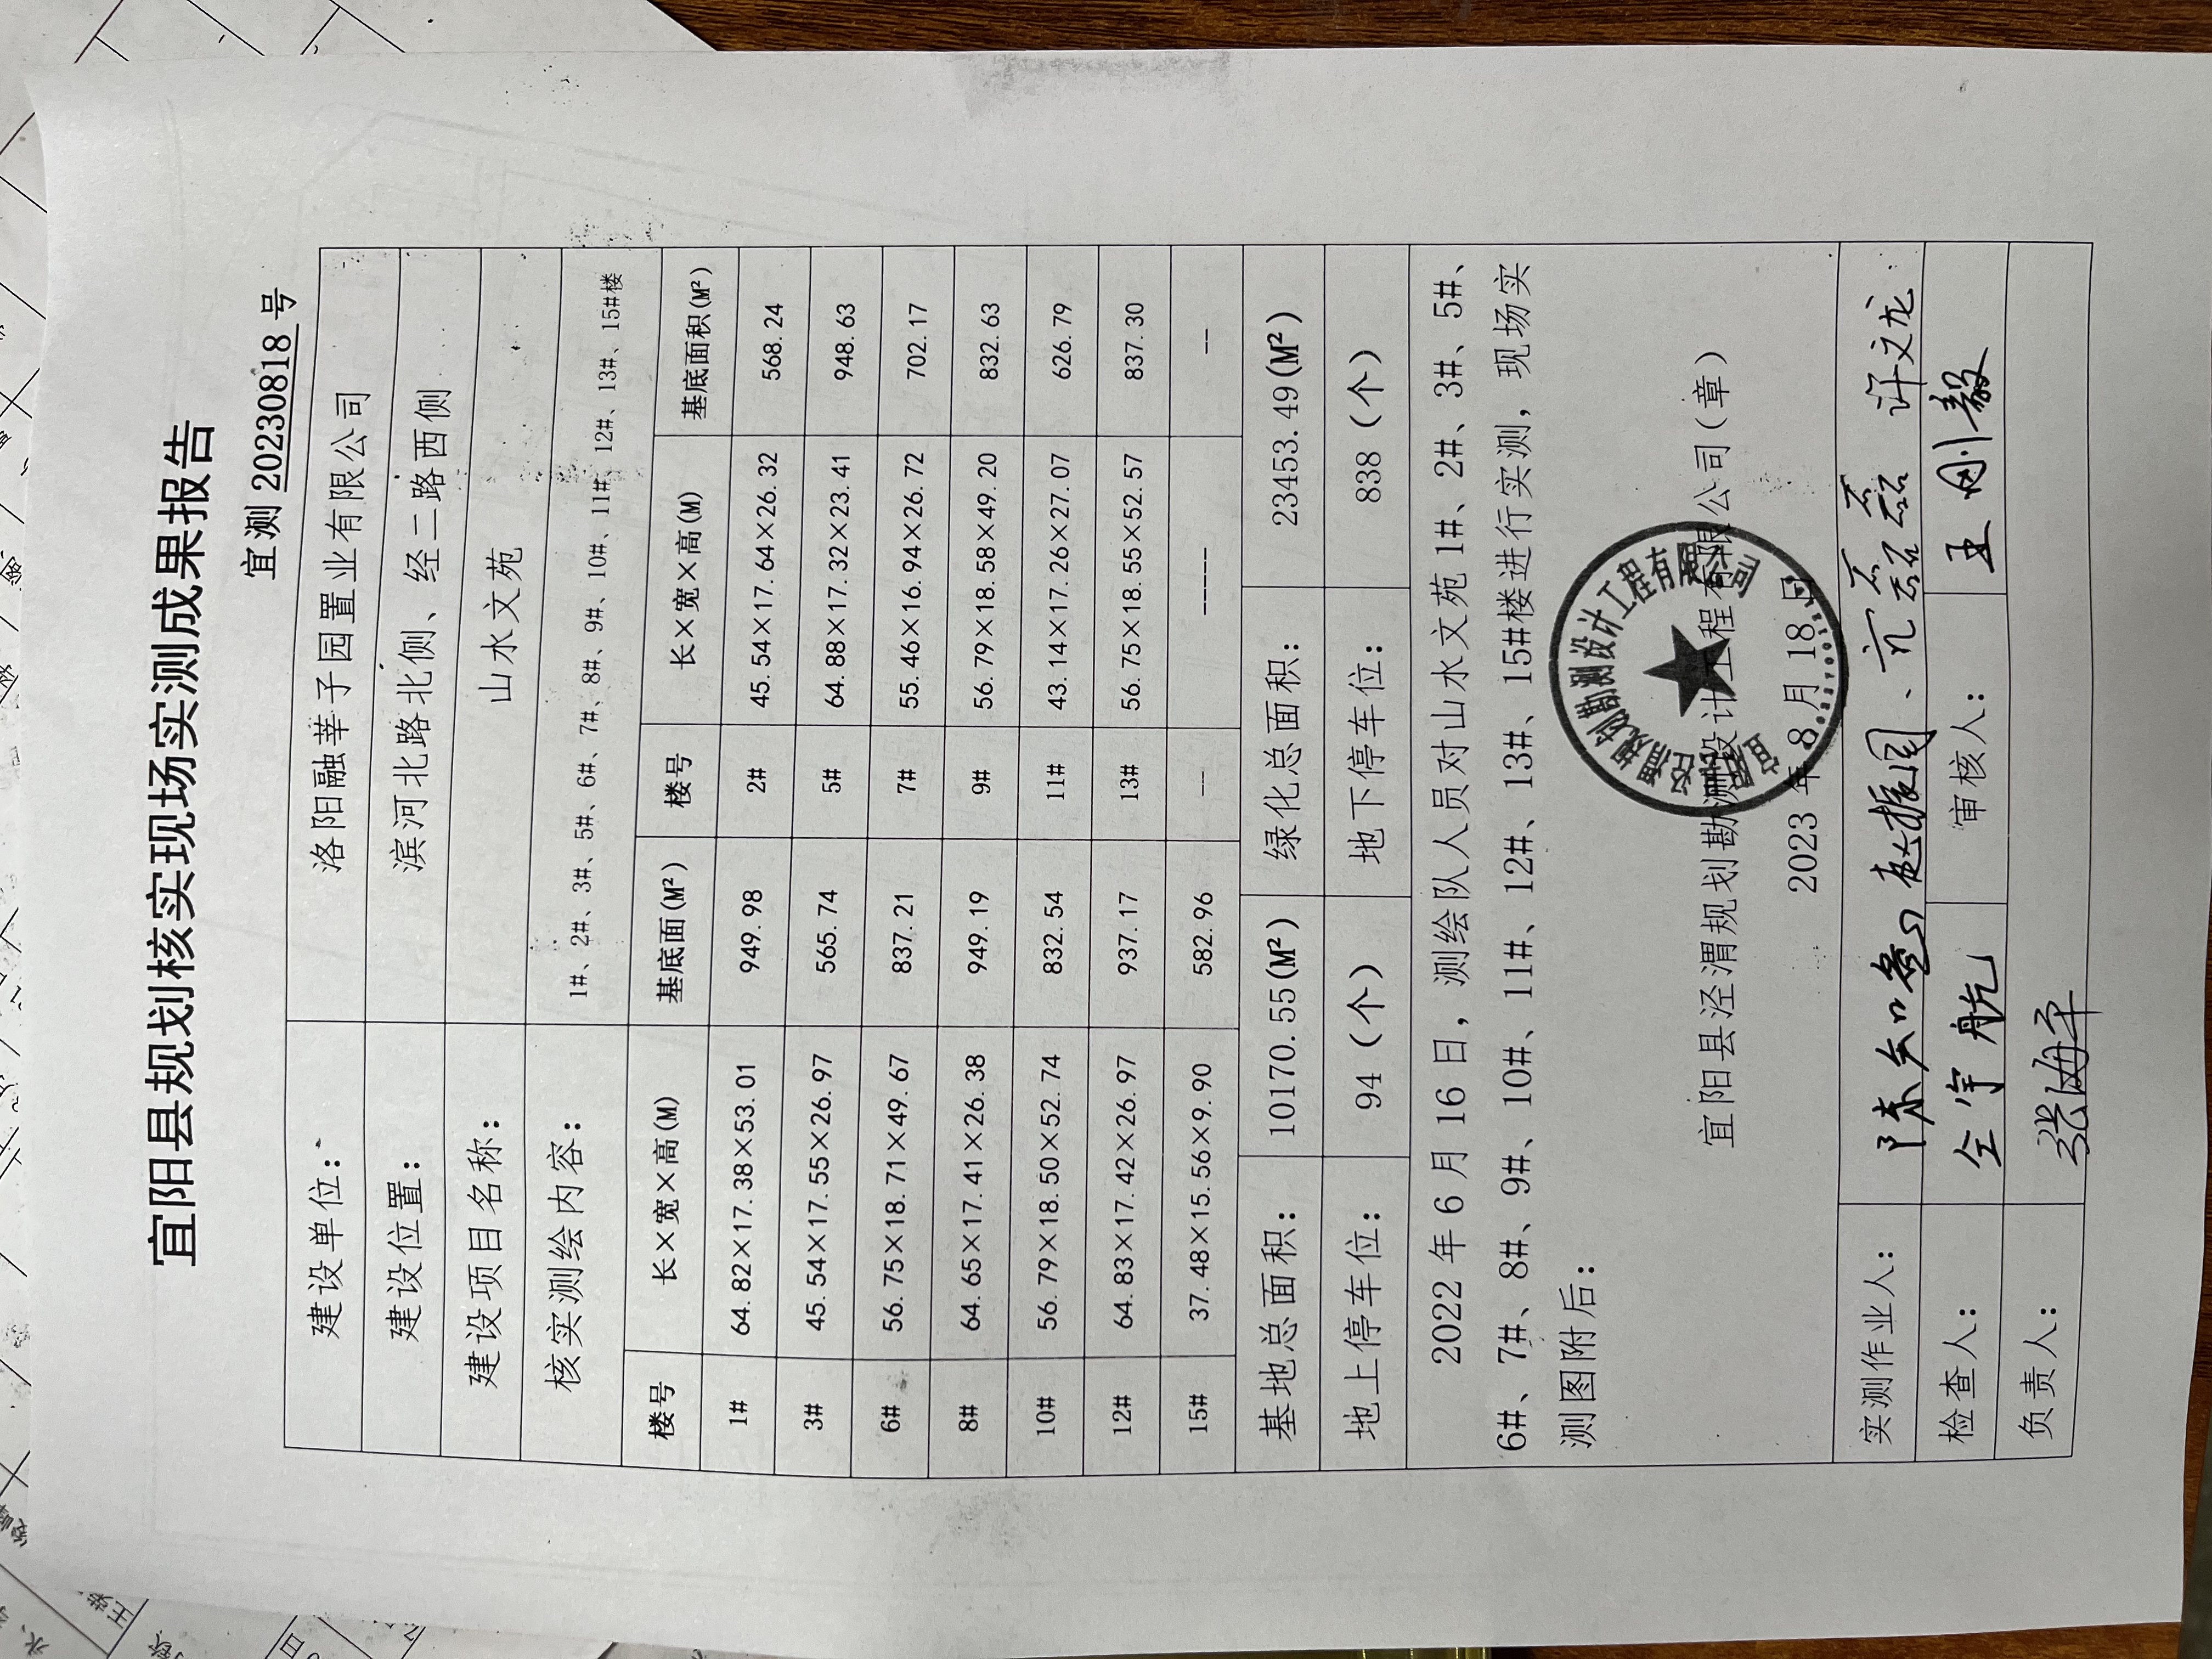 宜阳县规划核实现场实测成果报告
宜测 20230818 号
建设单位： 洛阳融莘子园置业有限公司
建设位置： 滨河北路北侧、经二路西侧
建设项目名称： 山水文苑
核实测绘内容： 1#、2#、3#、5#、6#、7#、8#、9#、10#、11#、12#、13#、15#楼
楼号 长×宽×高(M) 基底面(M²) 楼号 长×宽×高(M) 基底面积(M²)
1# 64.82×17.38×53.01 949.98 2# 45.54×17.64×26.32 568.24
3# 45.54×17.55×26.97 565.74 5# 64.88×17.32×23.41 948.63
6# 56.75×18.71×49.67 837.21 7# 55.46×16.94×26.72 702.17
8# 64.65×17.41×26.38 949.19 9# 56.79×18.58×49.20 832.63
10# 56.79×18.50×52.74 832.54 11# 43.14×17.26×27.07 626.79
12# 64.83×17.42×26.97 937.17 13# 56.75×18.55×52.57 837.30
15# 37.48×15.56×9.90 582.96 -- ----- --
基地总面积： 10170.55(M²) 绿化总面积： 23453.49(M²)
地上停车位： 94（个） 地下停车位： 838（个）
2022 年 6 月 16 日，测绘队人员对山水文苑 1#、2#、3#、5#、
6#、7#、8#、9#、10#、11#、12#、13#、15#楼进行实测，现场实
测图附后：
宜阳县泾渭规划勘测设计工程有限公司（章）
2023 年 8 月 18 日
宜阳县泾渭规划勘测设计工程有限公司
实测作业人： 赵振园、亢磊磊 许文龙
检查人： 仝宇航 审核人： 王刚毅
负责人： 张海平